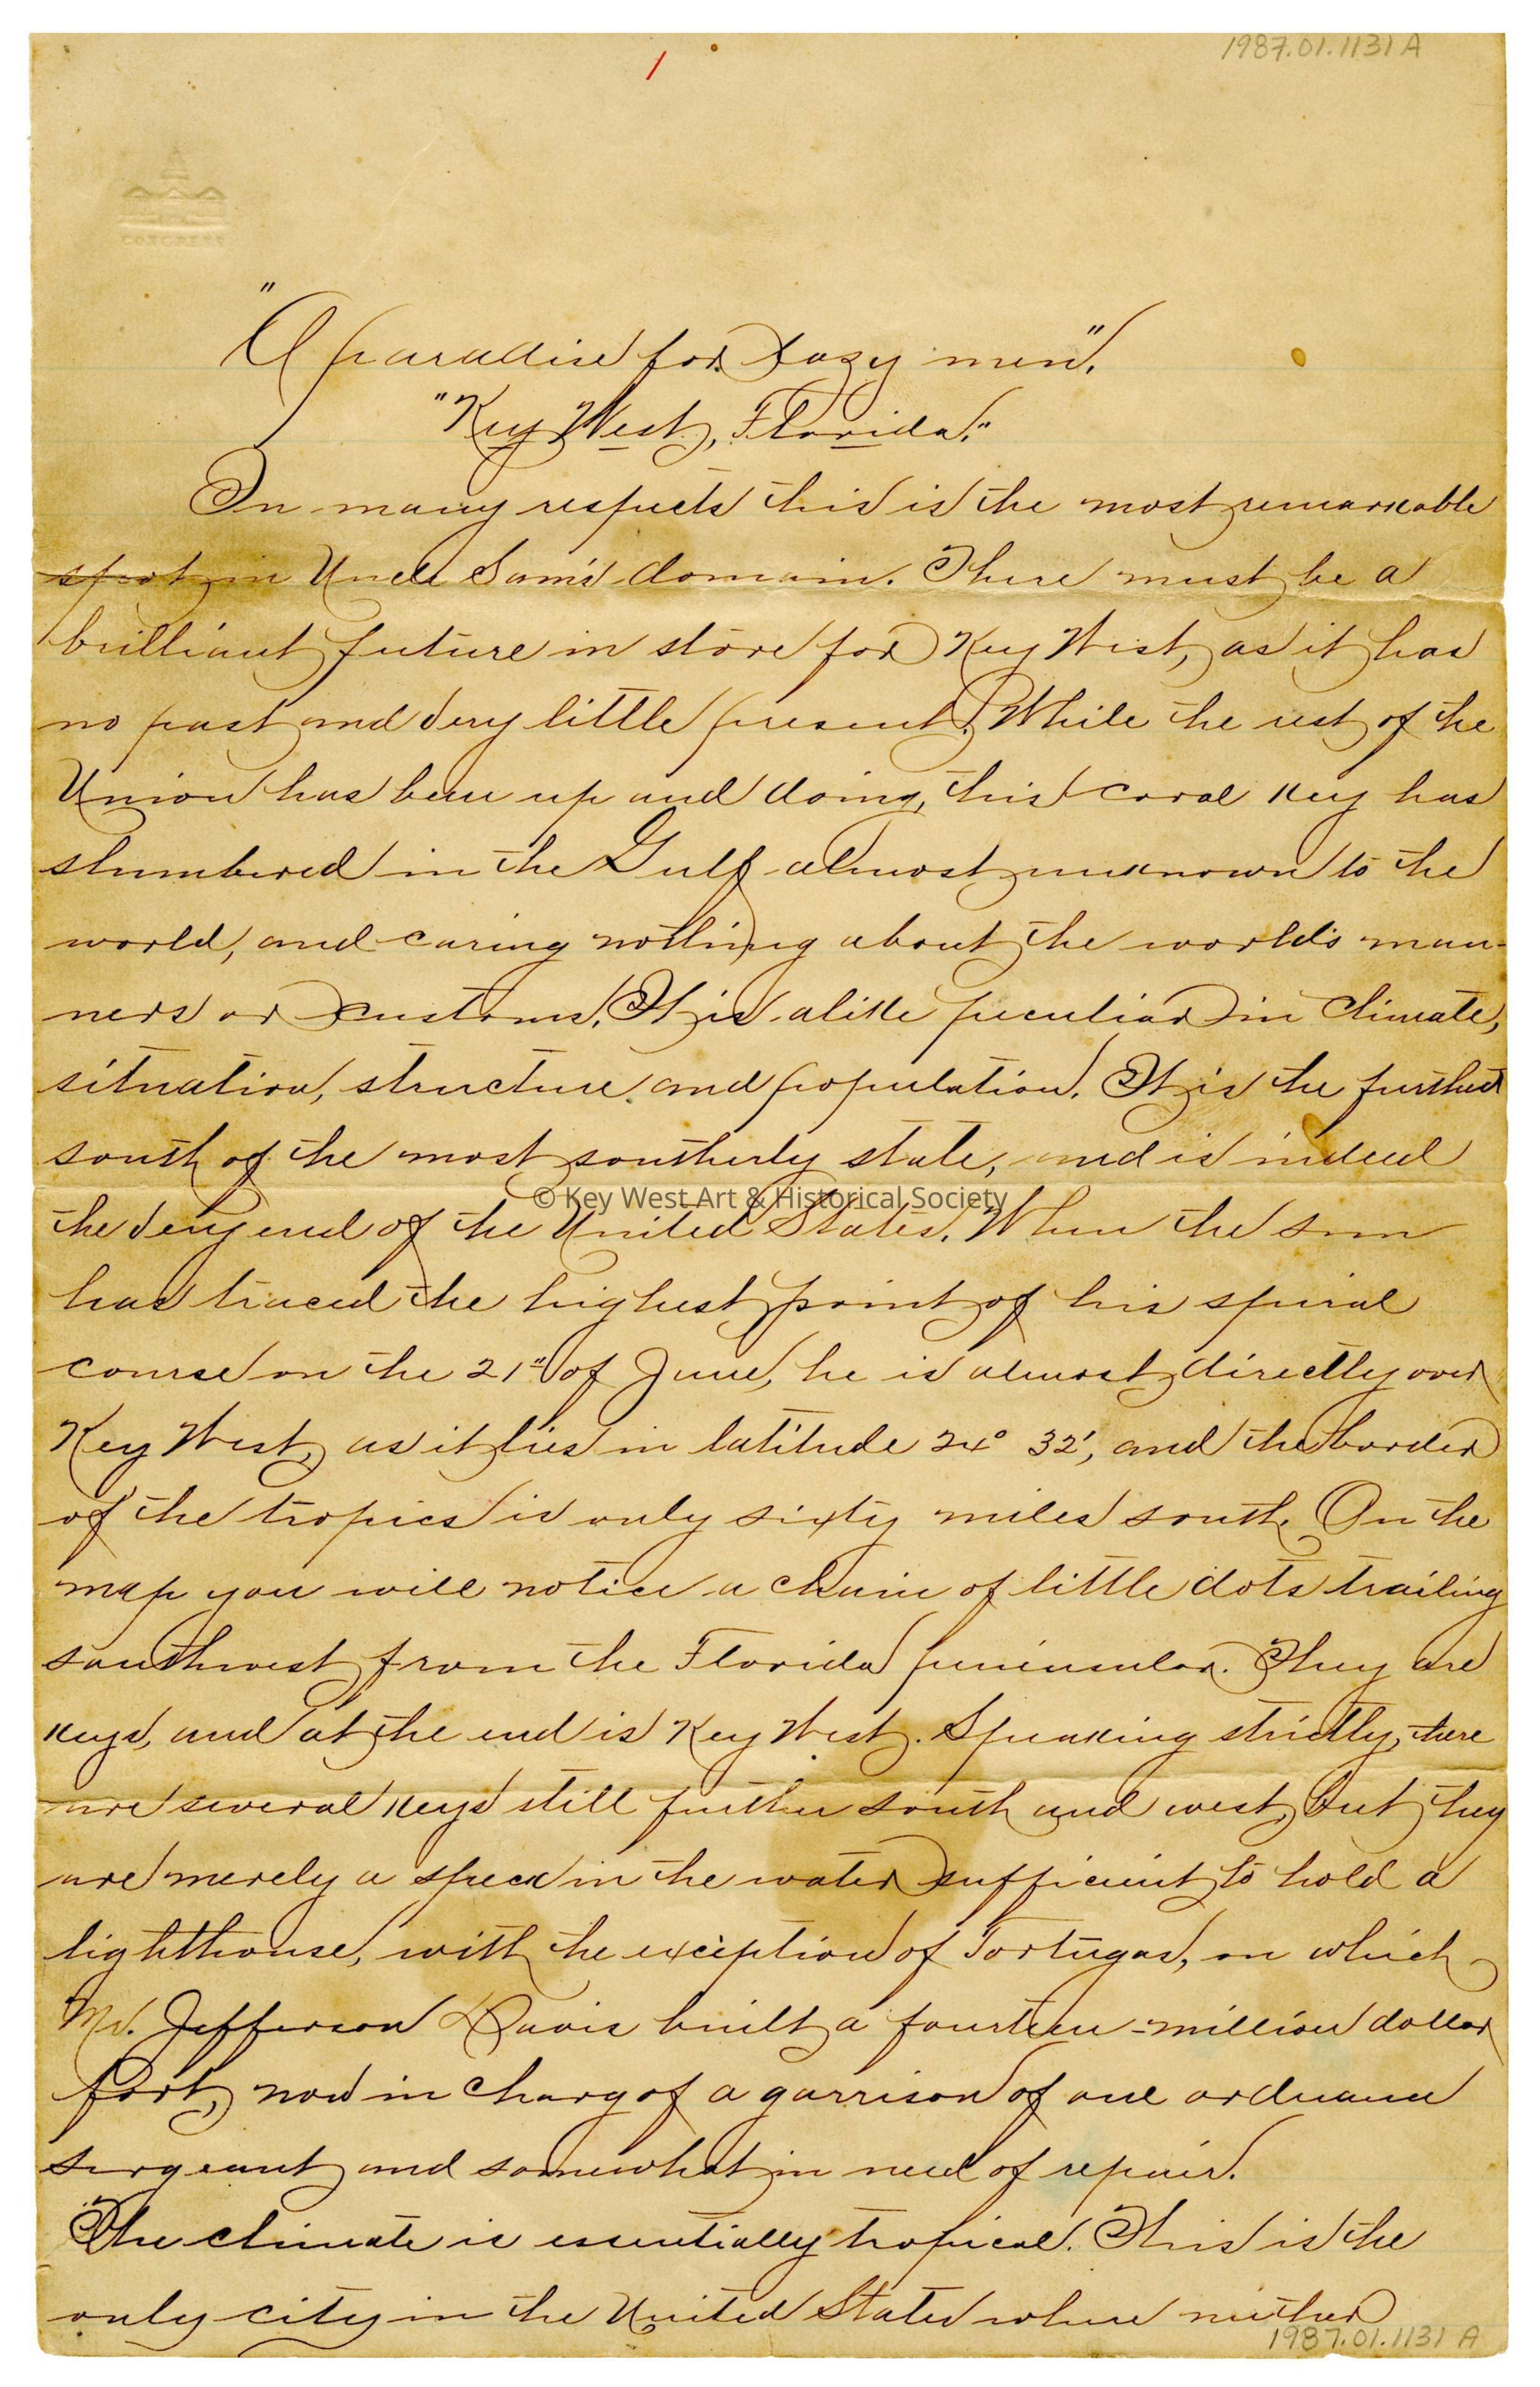 1987.01.1131 A
1
CONGRESS
"A paradise for Lazy men".
"Key West, Florida."
In many respects this is the most remarkable
spot in Uncle Sam's domain. There must be a
brilliant future in store for Key West, as it has
no past and very little present. While the rest of the
Union has been up and doing, this coral key has
slumbered in the Gulf almost unknown to the
world, and caring nothing about the world's man-
ners or customs. It is alike peculiar in climate,
situation, structure and population. It is the furthest
south of the most southerly state, and is indeed
© Key West Art & Historical Society
the very end of the United States. When the sun
has traced the highest point of his spiral
course on the 21" of June, he is almost directly over
Key West, as it lies in latitude 24° 32', and the border
of the tropics is only sixty miles south. On the
map you will notice a chain of little dots trailing
southwest from the Florida peninsular. They are
keys, and at the end is Key West. Speaking strictly, there
are several keys still further south and west, but they
are merely a speck in the water sufficient to hold a
lighthouse, with the exception of Tortugas, on which
Mr. Jefferson Davis built a fourteen-million dollar
fort, now in charg of a garrison of one ordnance
sergeant and somewhat in need of repair.
"The climate is essentially tropical. This is the
only city in the United States where neither
1987.01.1131 A